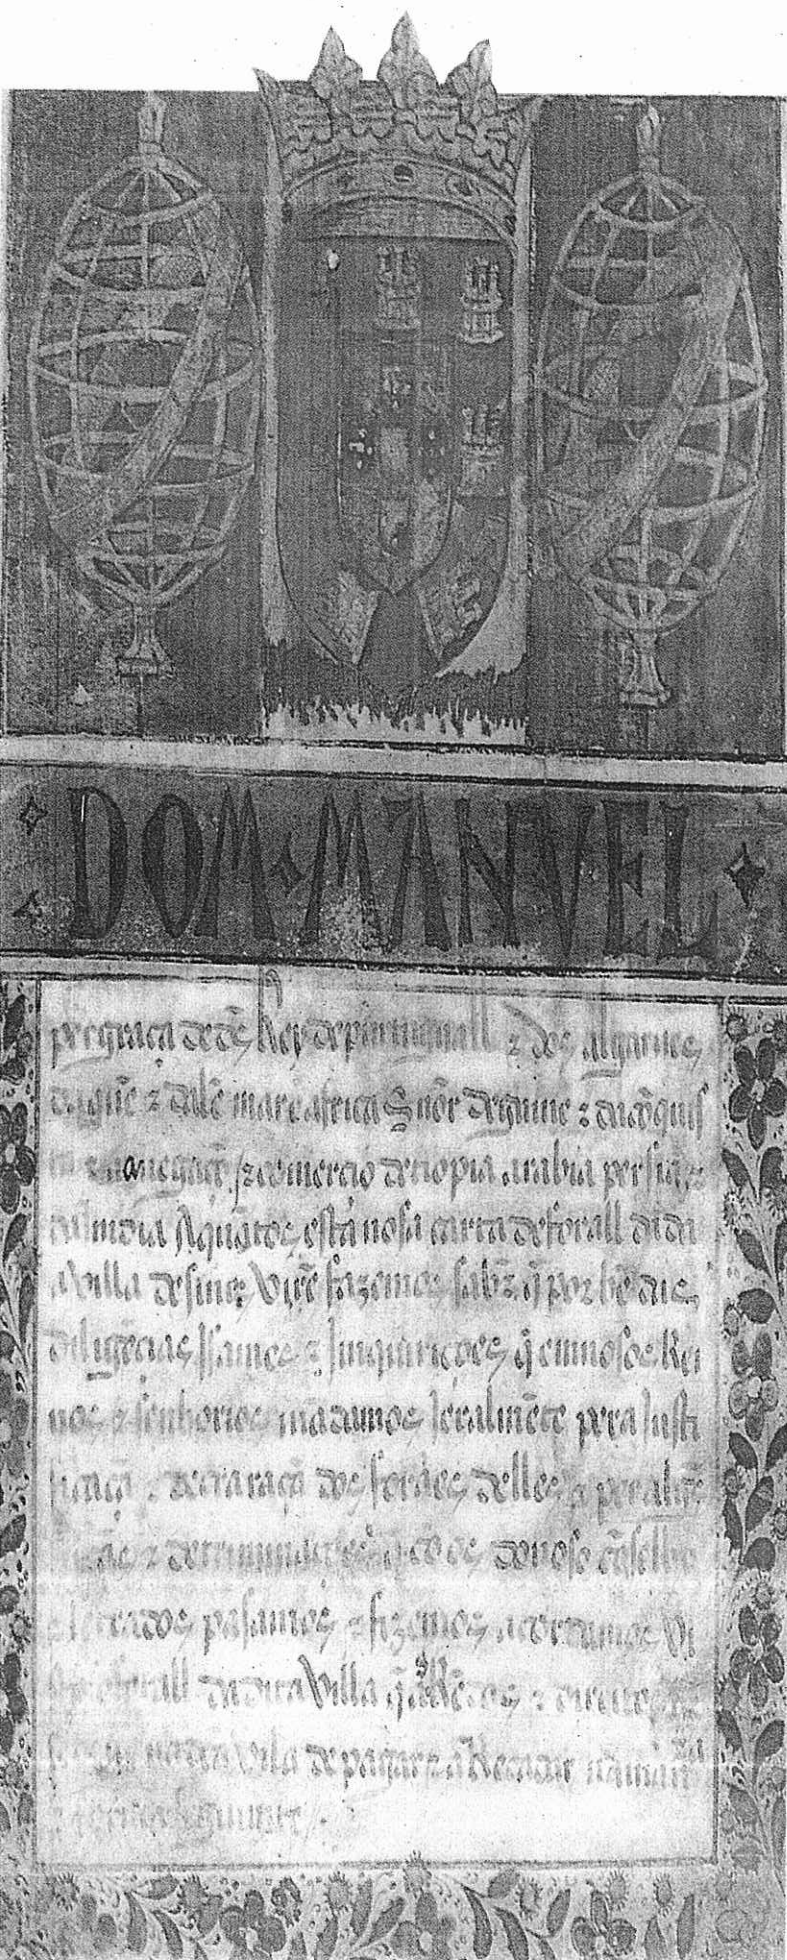 DOM MANVEL
per graça de ds̃ Rey de purtuguall z dos algarues
daquẽ z dalẽ mar ẽ africa Sñor de guine z da cõquis
nauegaçã z comercio detiopia arabia persia z
da India Aquãtos esta nosa carta de forall dada
a villa de sines virẽ fazemos saber q̃ por bẽ das
diligẽcias z Inquirições q̃ em nosos Rei
nos z senhorios mãdamos geralmẽte pera Justi
z decraraçã dos foraes delles z per
z detriminações q̃ cõ os do noso cõselho
letrados pasamos z fizemos acordamos
forall da dita villa q̃ as Rẽdas z direitos
na dita vila de pagar z a Recadar na maneira
z forma seguinte